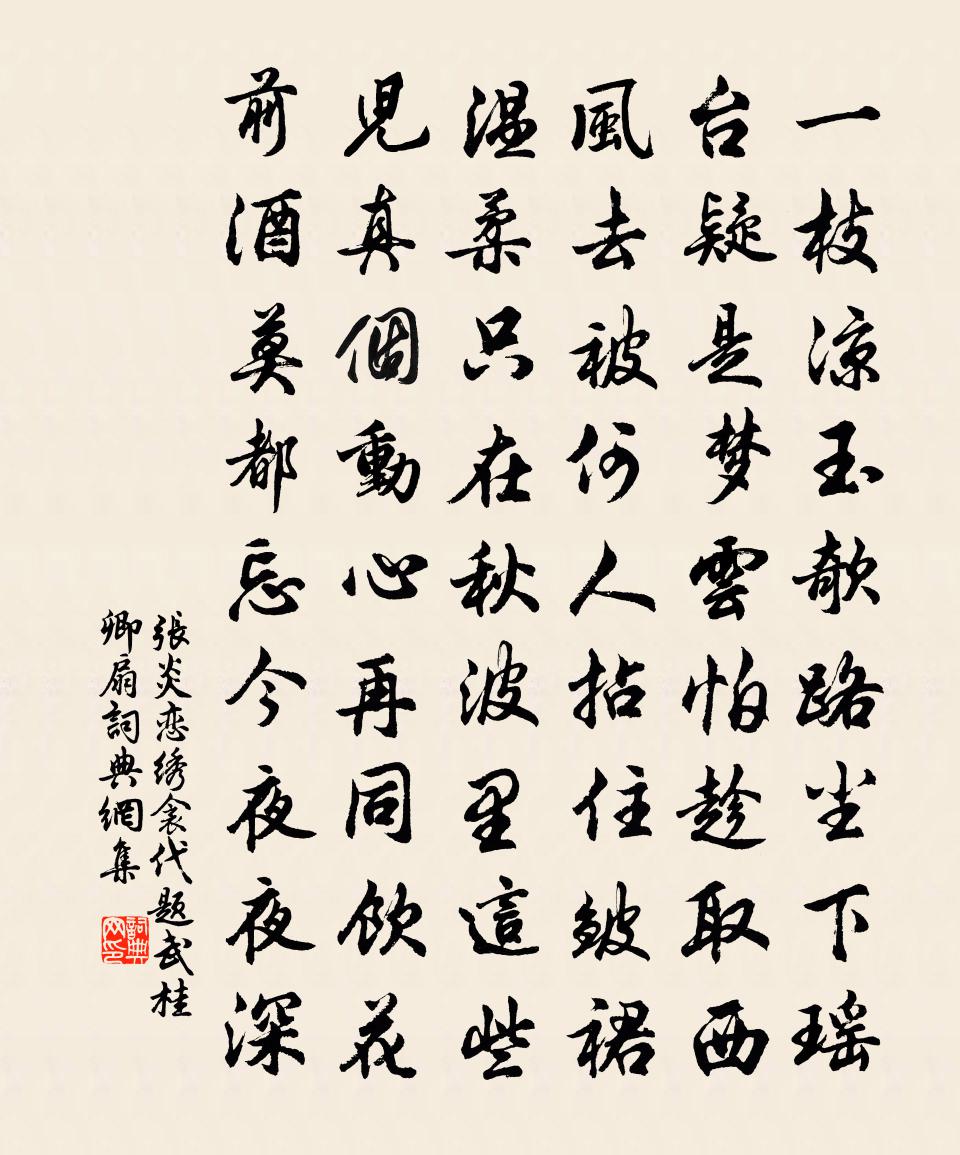 一枝涼玉欹路尘下瑶
台疑是梦雲怕趁取西
風去被何人拈住皱裙
温柔只在秋波里這些
児真個動心再同飲花
前酒莫都忘今夜夜深
張炎恋绣衾代题武桂
卿扇詞典網集
詞典
网印